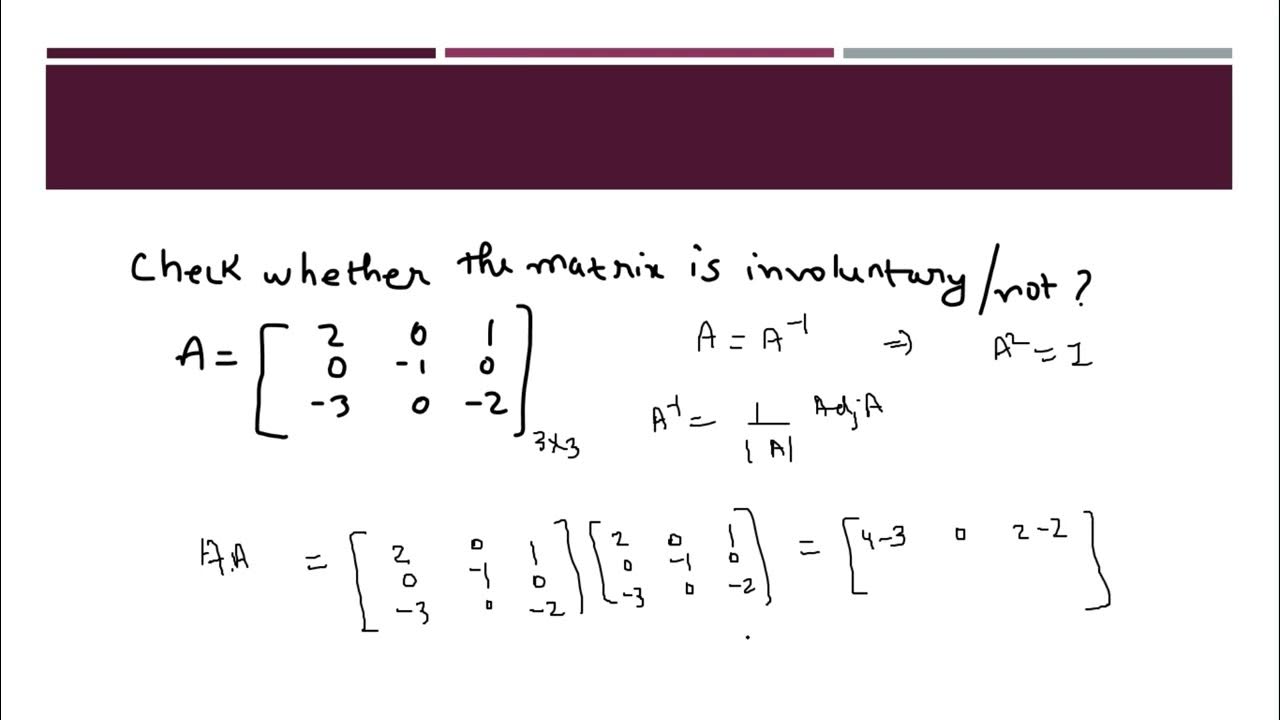 Check whether the matrix is involuntary/not?
A = [ 2 0 1
0 -1 0
-3 0 -2 ]3×3
A = A⁻¹ ⇒ A² = I
A⁻¹ = 1/|A| Adj A
A.A = [ 2 0 1
0 -1 0
-3 0 -2 ] [ 2 0 1
0 -1 0
-3 0 -2 ] = [ 4-3 0 2-2 ]